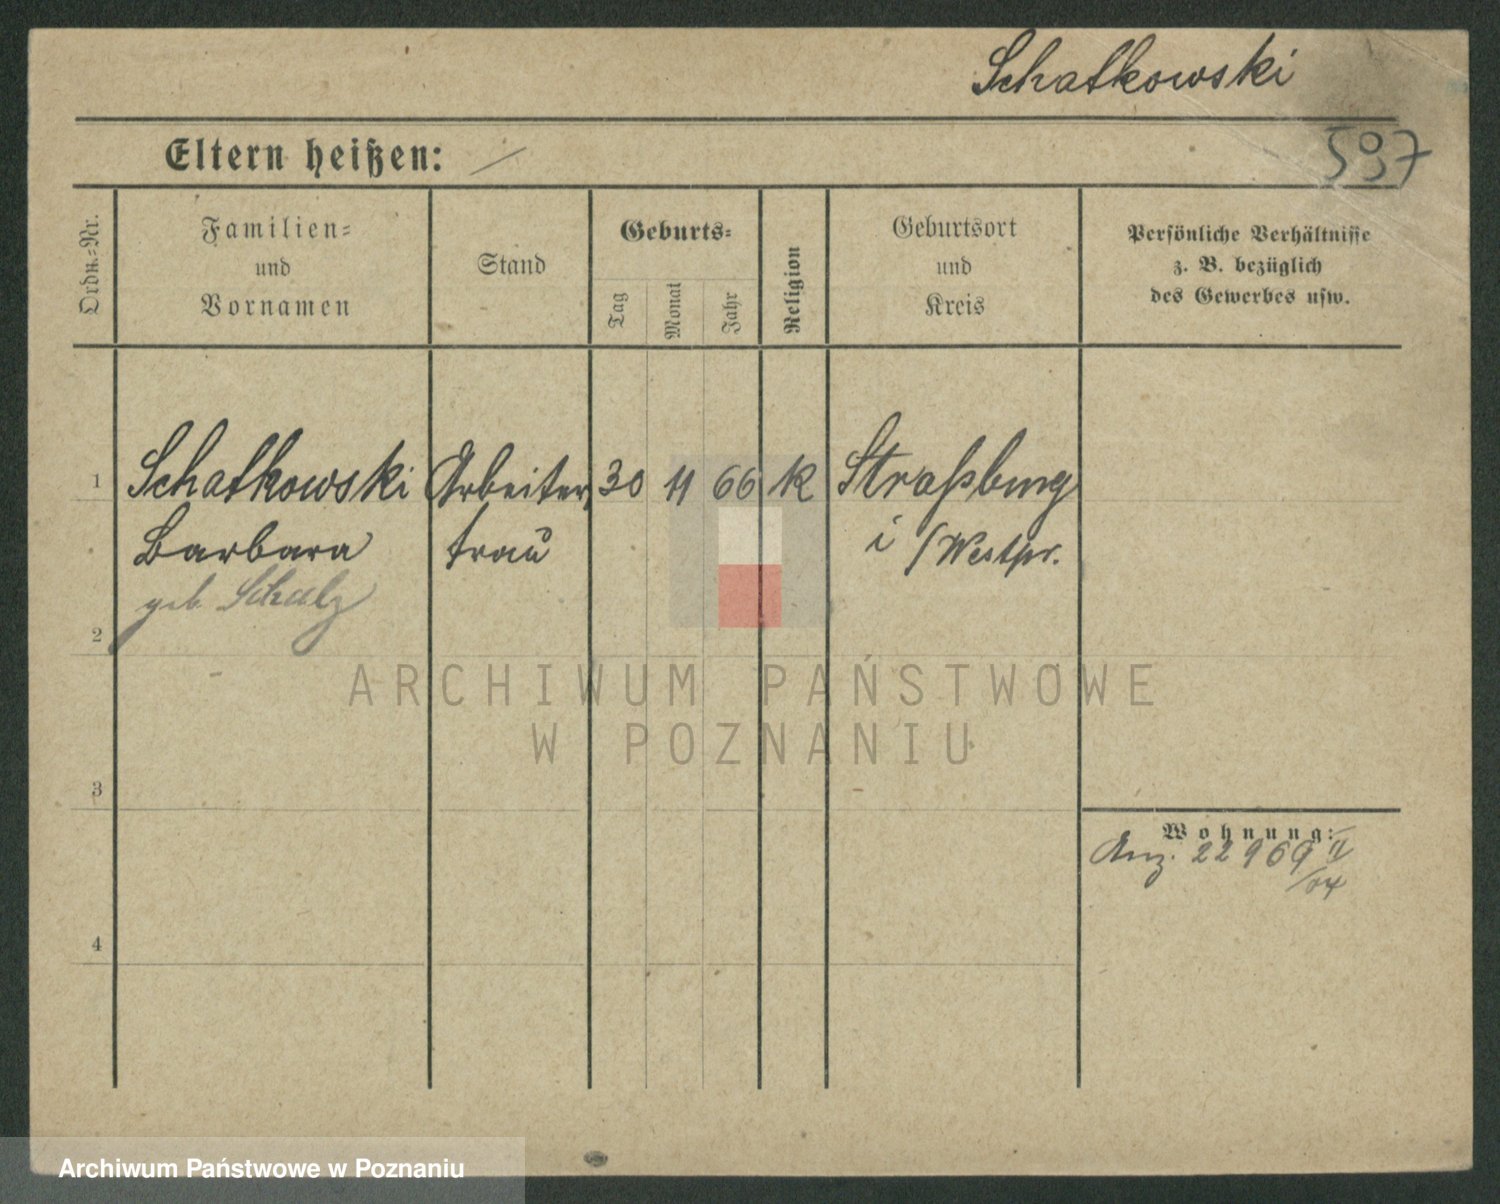 Schatkowski
597
Eltern heißen: /
Ordn.-Nr.
Familien-
und
Vornamen
Stand
Geburts-
Tag
Monat
Jahr
Religion
Geburtsort
und
Kreis
Persönliche Verhältnisse
z. B. bezüglich
des Gewerbes usw.
1 Schatkowski Arbeiter, 30 11 66 K Straßburg
Barbara frau i/Westpr.
geb. Schulz
2
ARCHIWUM PAŃSTWOWE
W POZNANIU
3
Wohnung:
Anz. 22969 II
/04
4
Archiwum Państwowe w Poznaniu